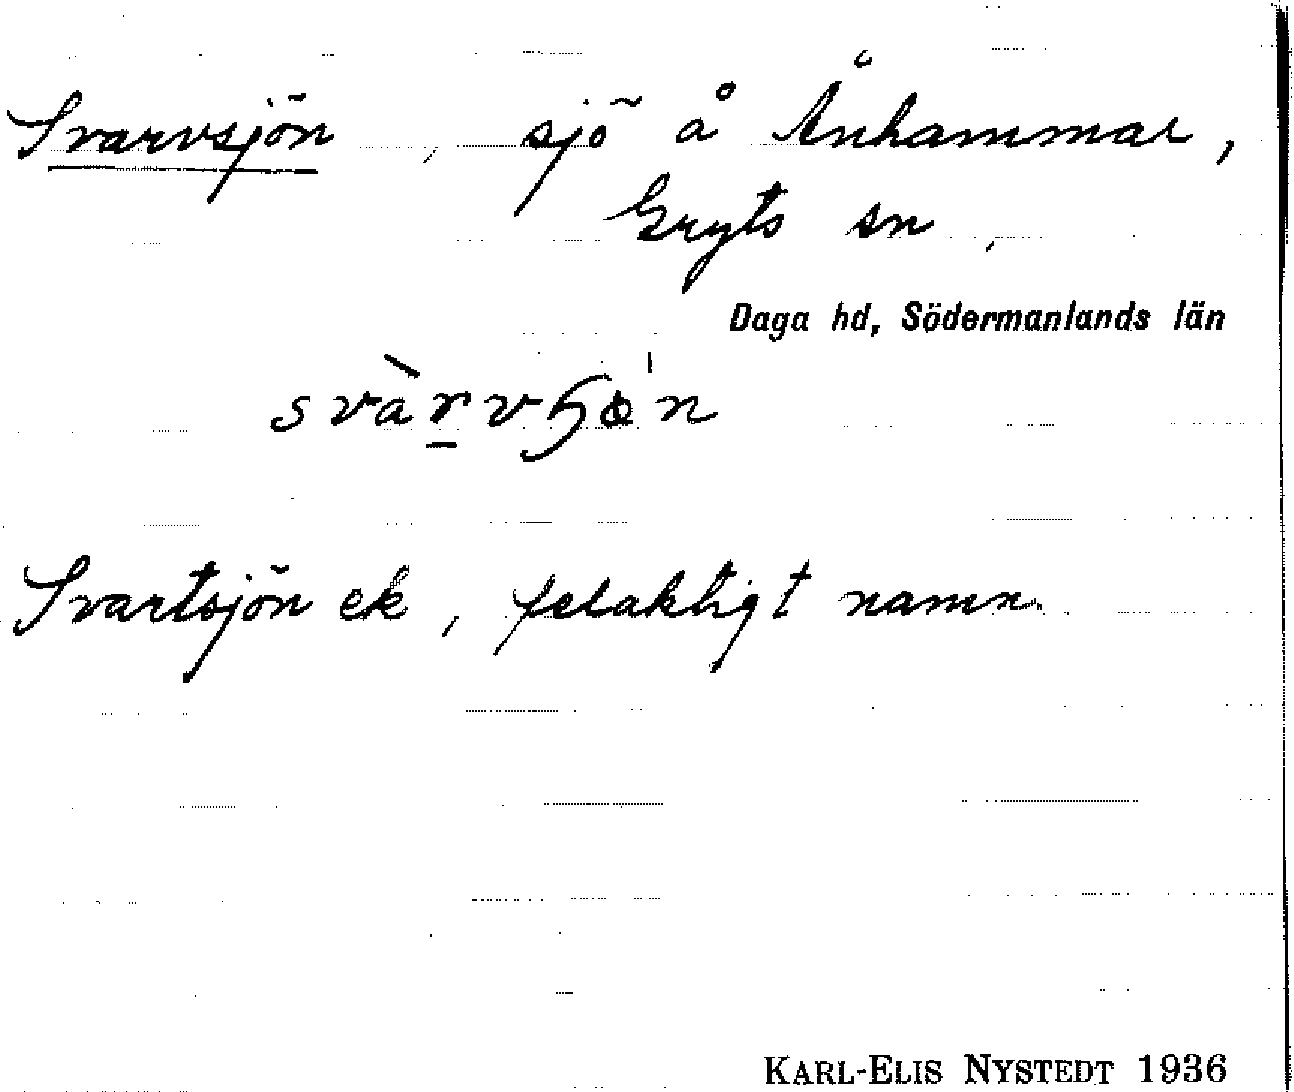 Svarvsjön, sjö å Ånhammar,
Gryts sn,
Daga hd, Södermanlands län
Svartsjön ek, felaktigt namn.
KARL-ELIS NYSTEDT 1936